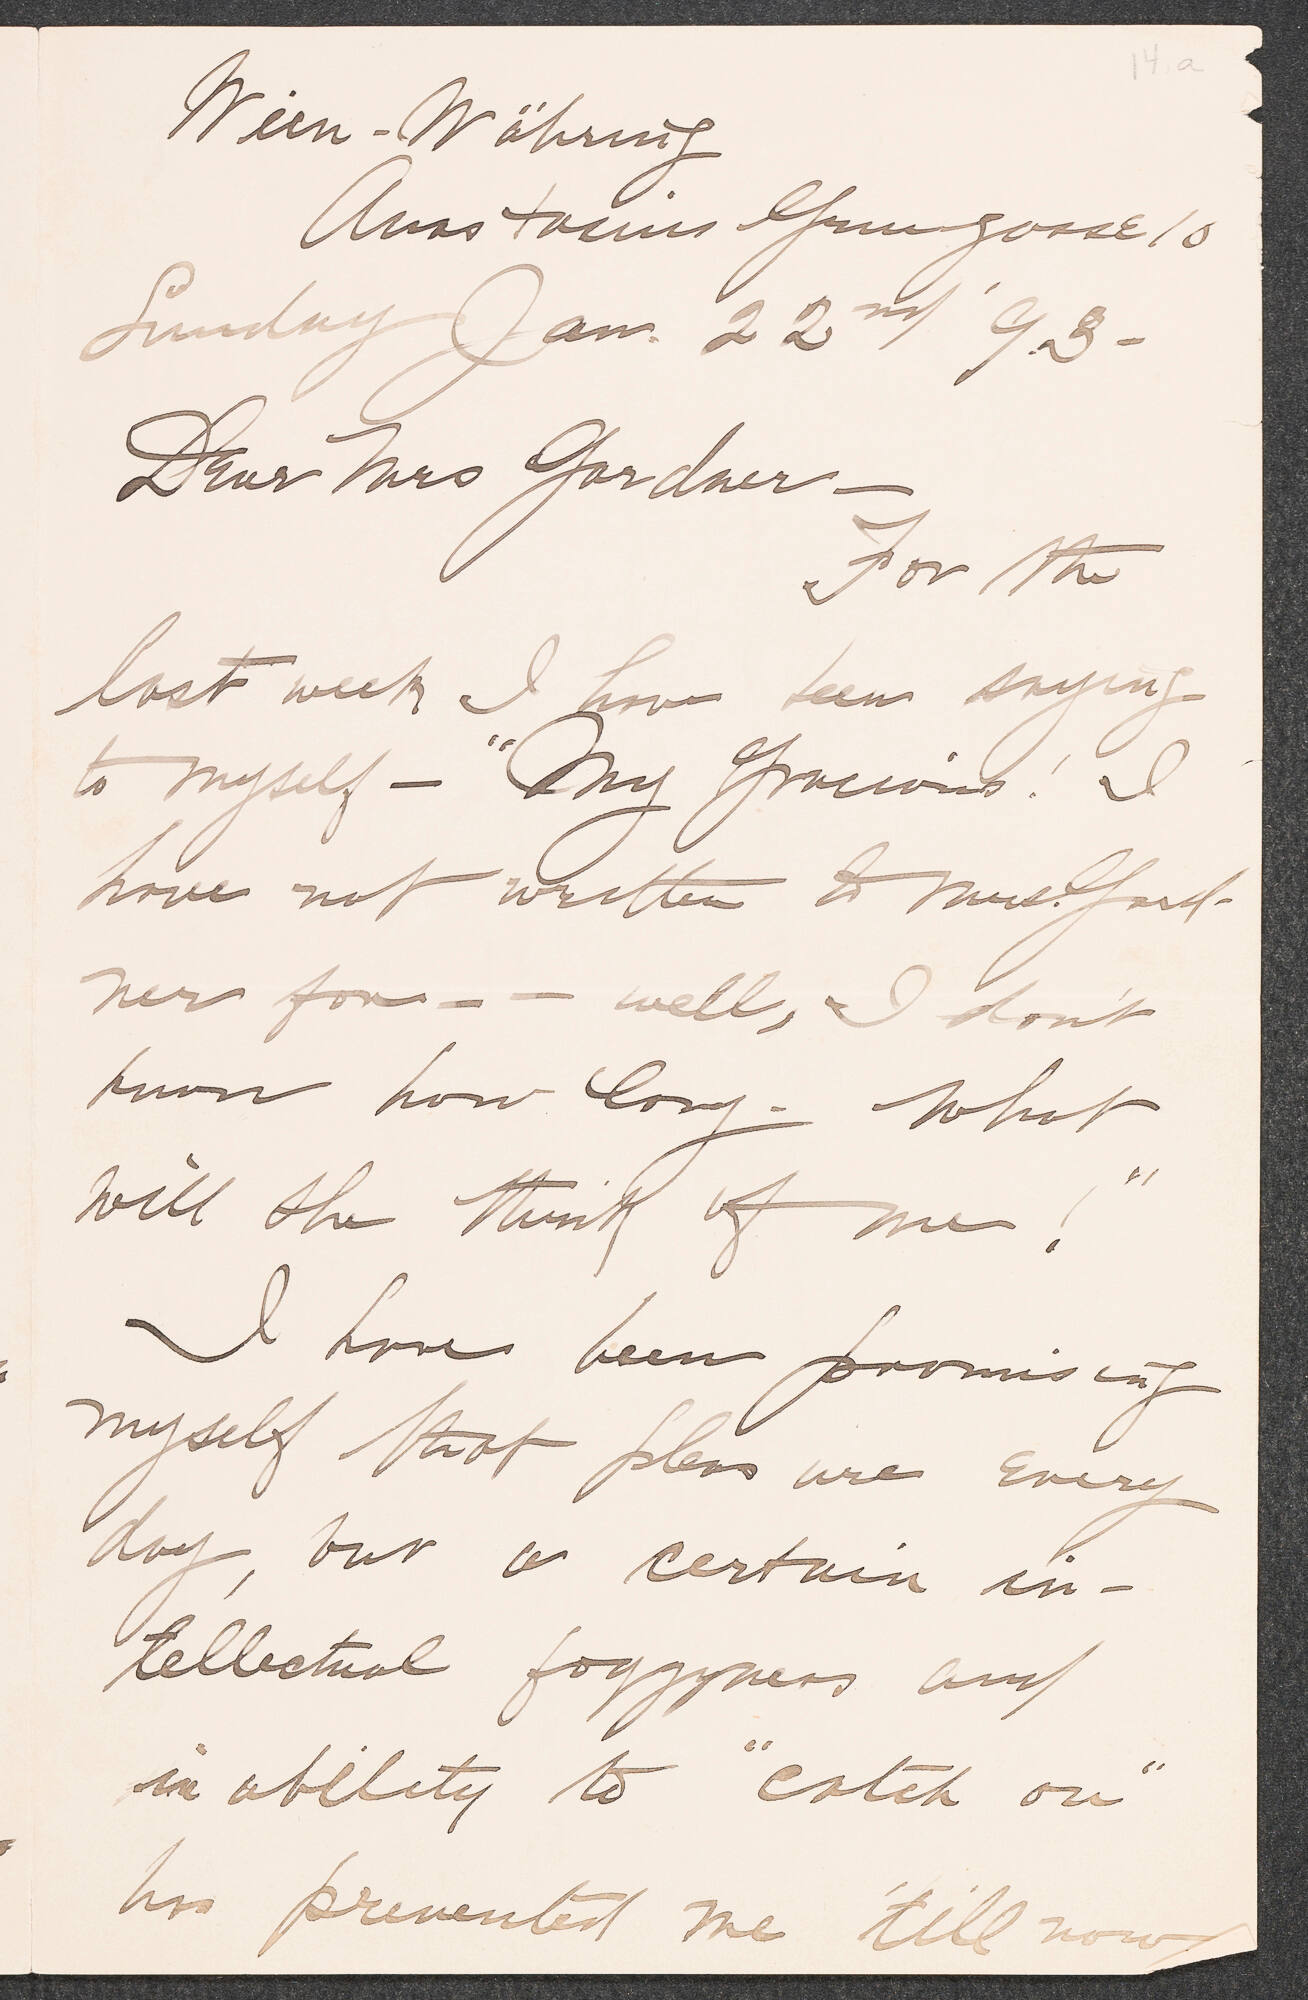 14.a
Wien-Währing
Anastasius Grungasse 10
Sunday Jan. 22nd '93-
Dear Mrs Gardner—
For the
last week I have been saying
to myself — "My Gracious! I
have not written to Mrs. Gard-
ner for — — well, I don't
know how long. What
will she think of me!"
I have been promising
myself that pleasure every
day, but a certain in-
tellectual foggyness and
inability to "catch on"
has prevented me 'till now